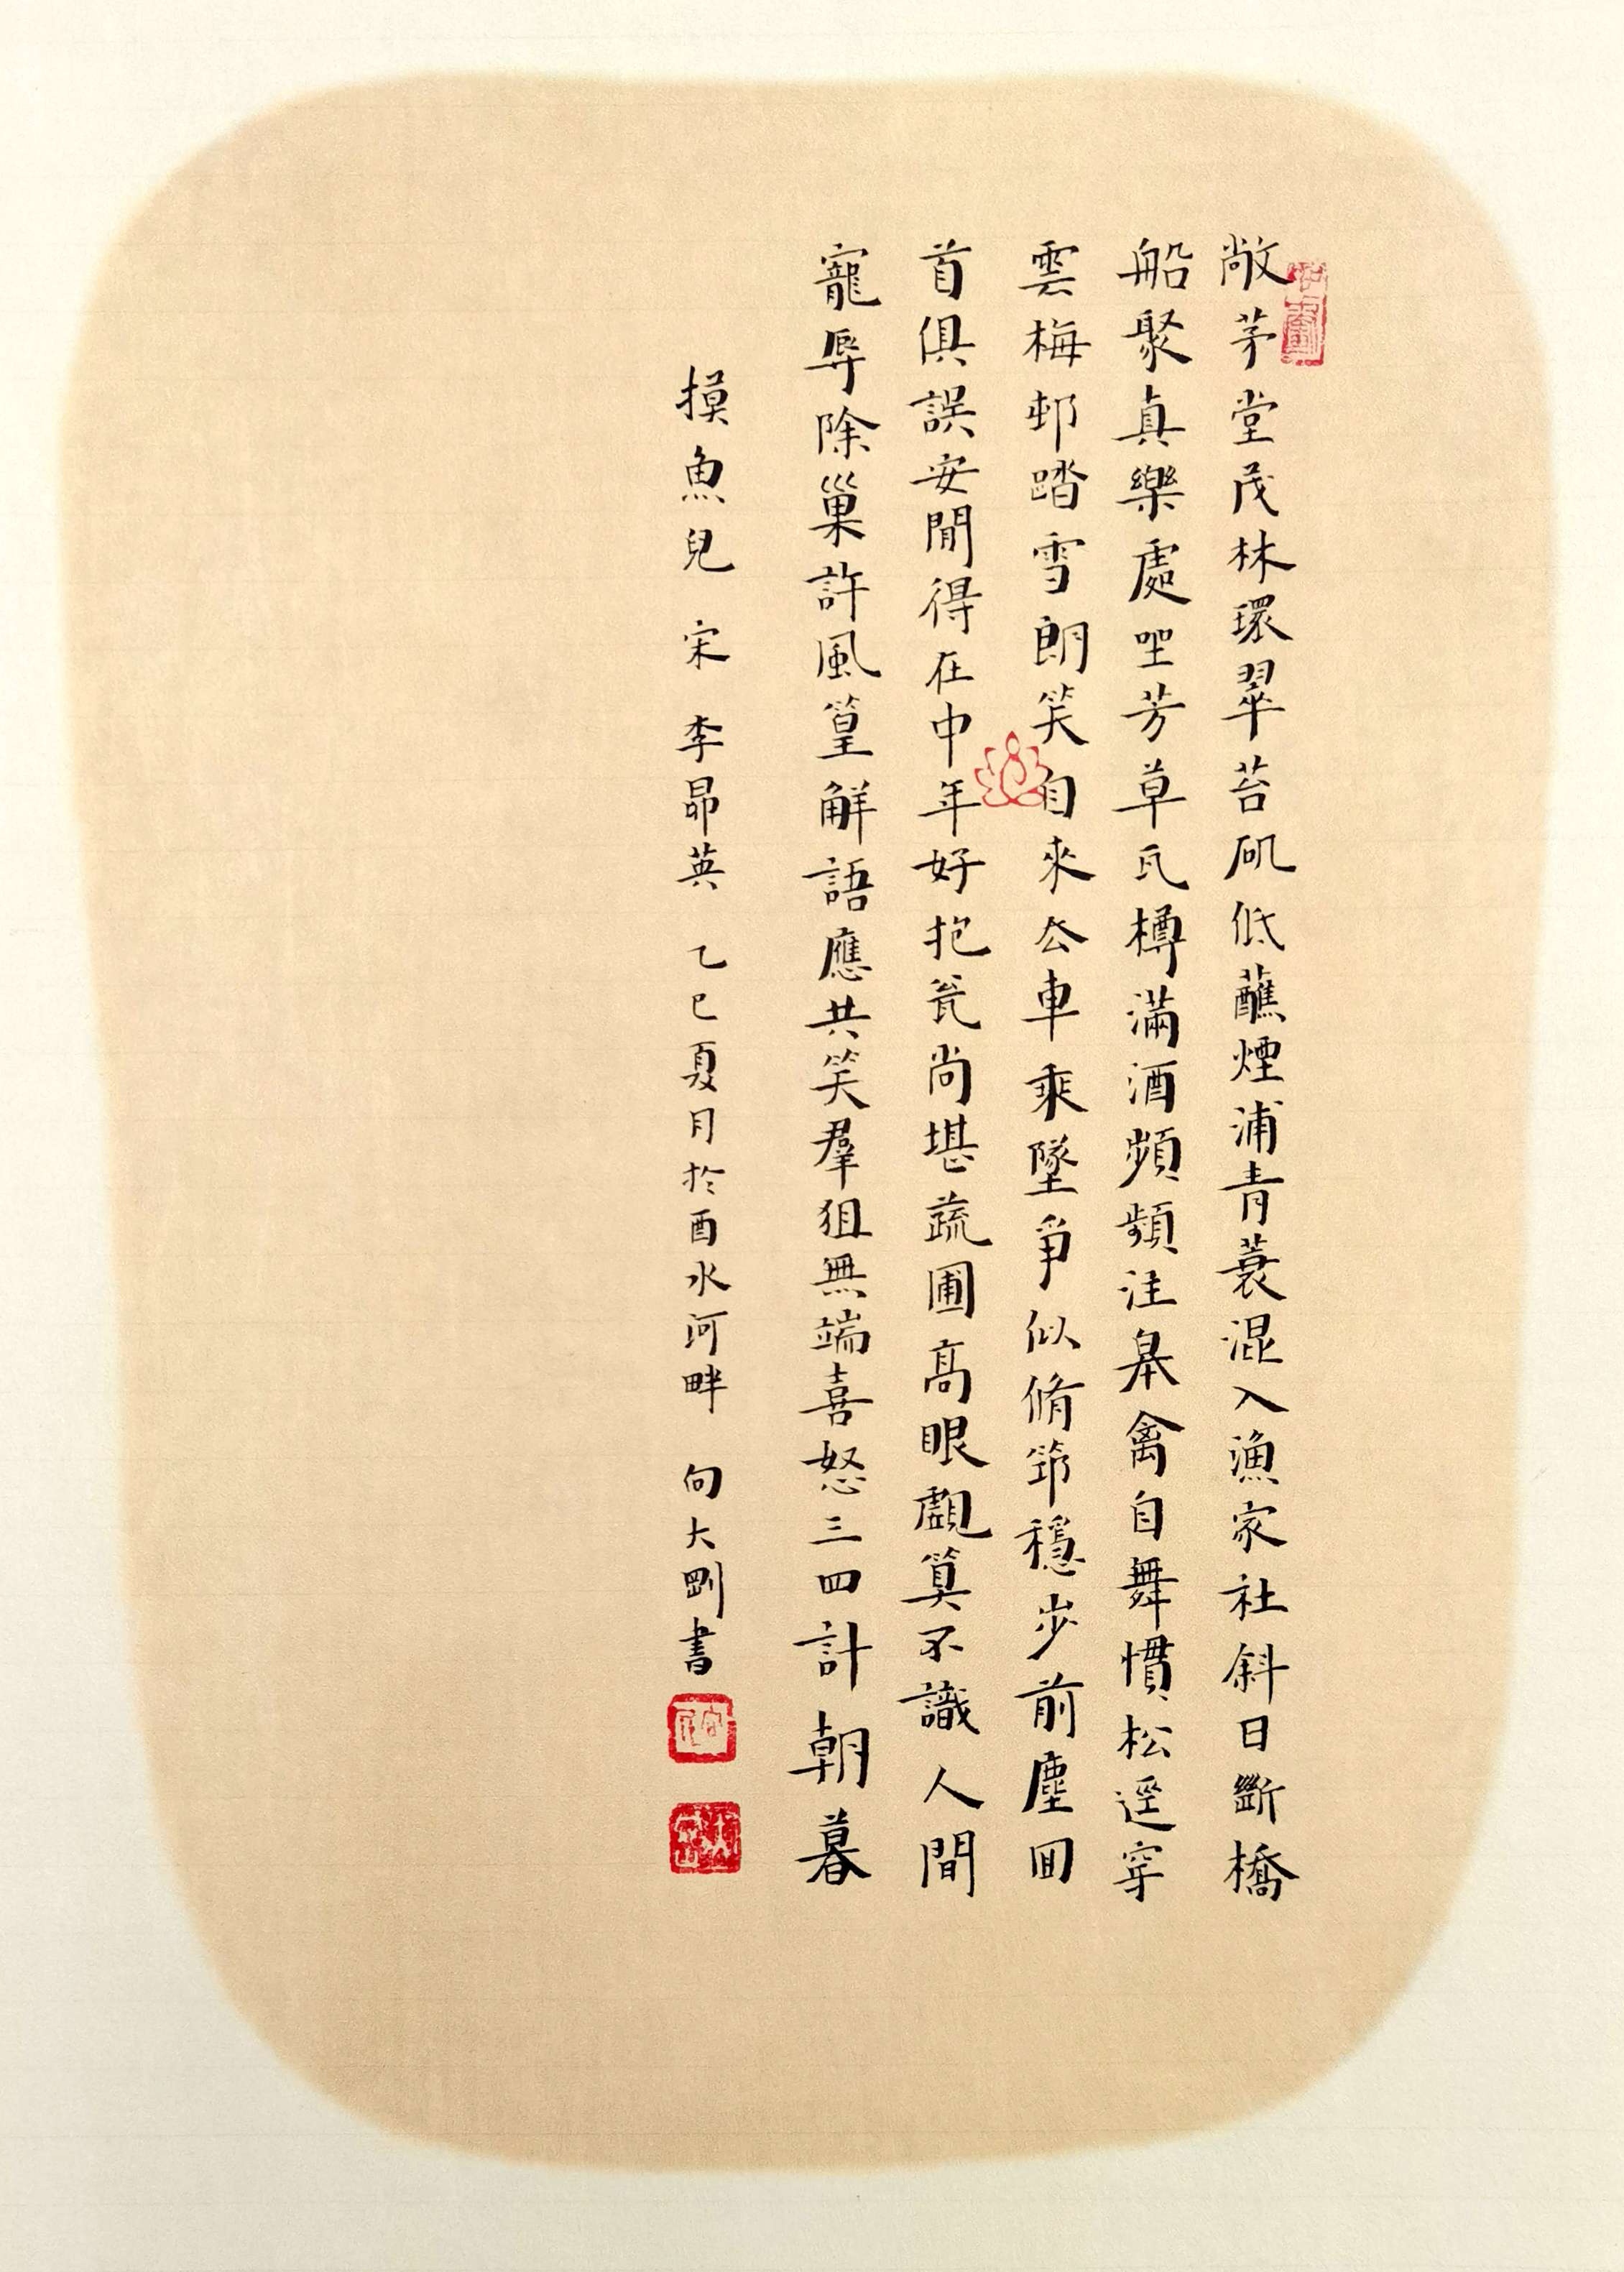 敞茅堂茂林環翠苔磯低蘸煙浦青蓑混入漁家社斜日斷橋
船聚真樂處坐芳草瓦樽滿酒頻頻注皋禽自舞慣松逕穿
雲梅邨踏雪朗笑自來去車乘墜爭似脩筇穩步前塵回
首俱誤安閒得在中年好抱瓮尚堪蔬圃高眼覷算不識人間
寵辱除巢許風篁解語應共笑羣狙無端喜怒三四計朝暮
摸魚兒 宋 李昴英 乙巳夏月於酉水河畔 向大剛書